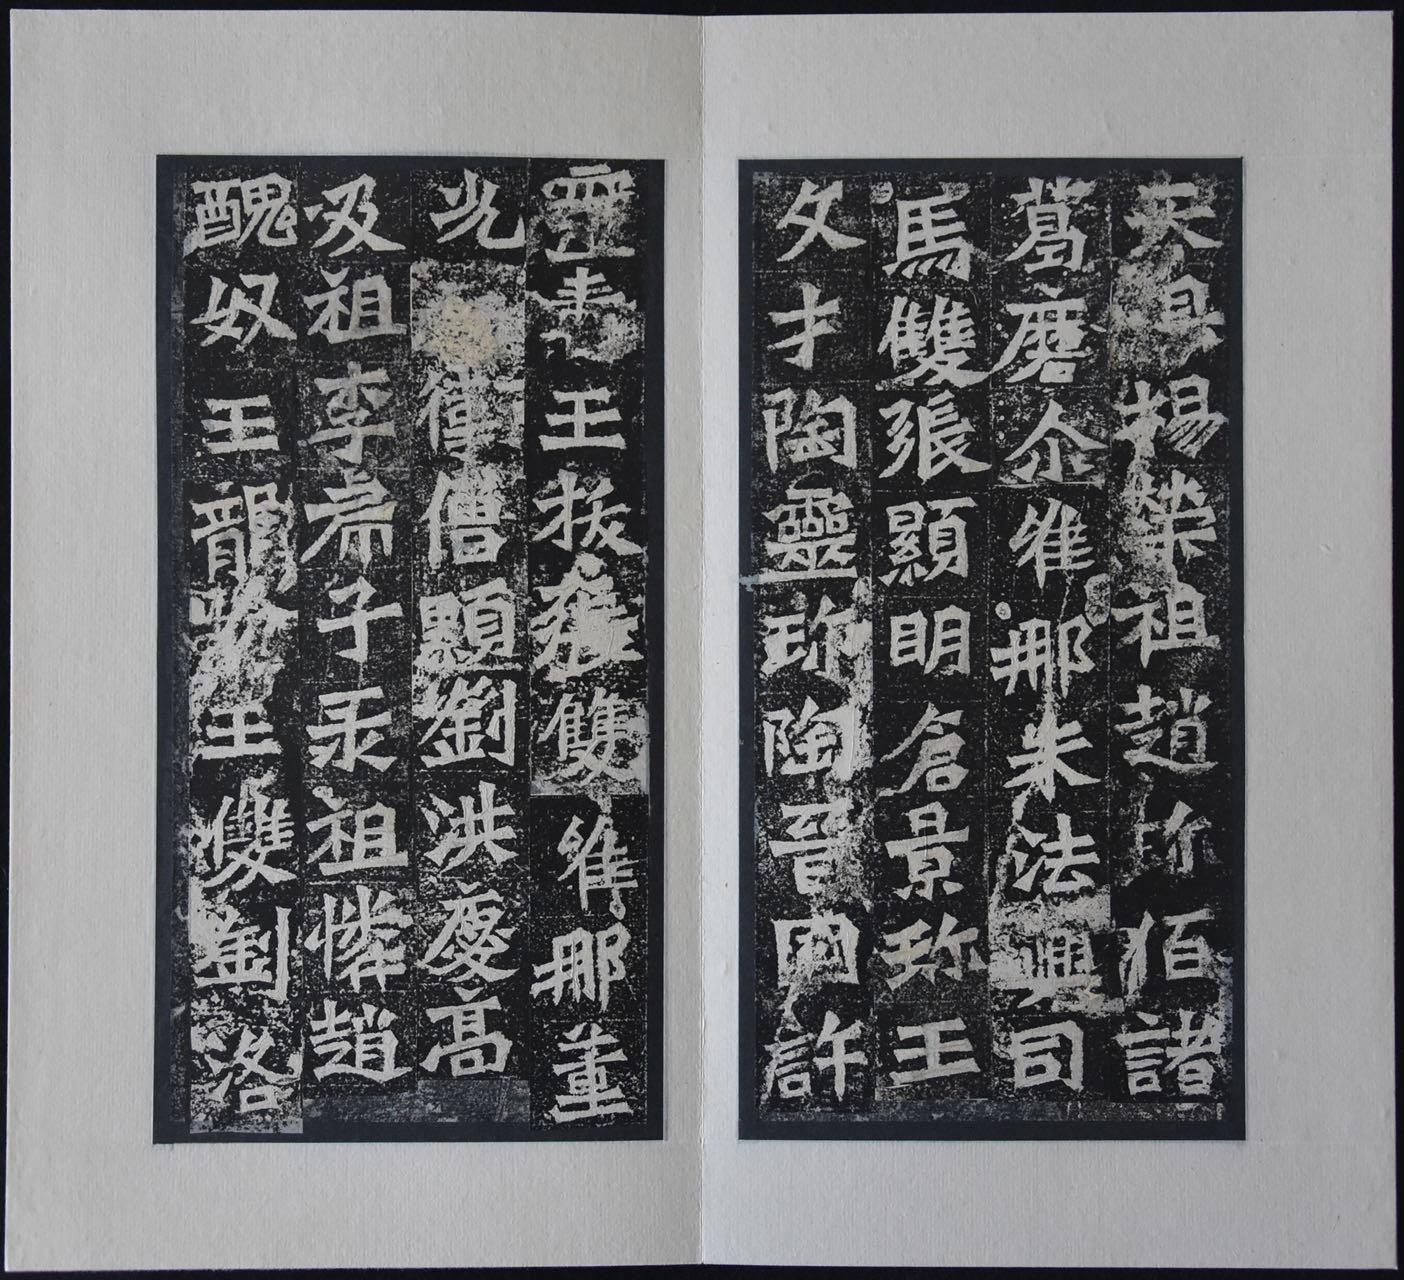 天 楊榮祖趙祢㹮諸
葛磨仚維那朱法興司
馬雙張顯明倉景珎王
文才陶靈珎陶晉國許
王拔 雙維那董
光 僧顯劉洪慶高
及祖李 子汞祖憐趙
醜奴王龍 王雙劉洛